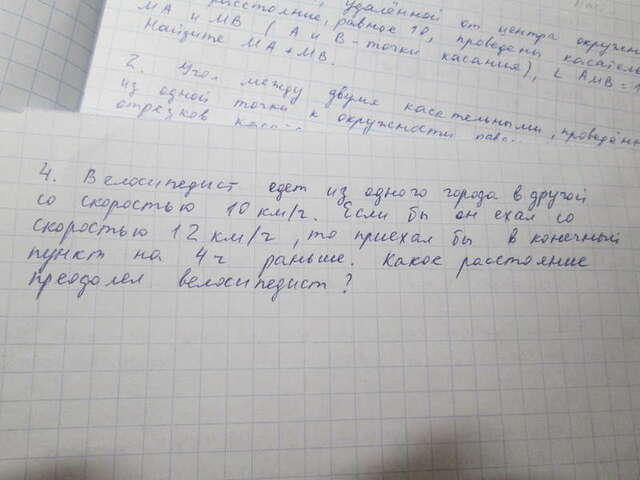 удалённой от центра окружн
расстояние, равное 10, проведены касател
МА и МВ (А и В - точки касания), ∠ АМВ = 1
Найдите МА + МВ.
2. Угол между двумя касательными, проведённ
из одной точки к окружности
отрезков
4. Велосипедист едет из одного города в другой
со скоростью 10 км/г. Если бы он ехал со
скоростью 12 км/г, то приехал бы в конечный
пункт на 4 г раньше. Какое расстояние
преодолел велосипедист?